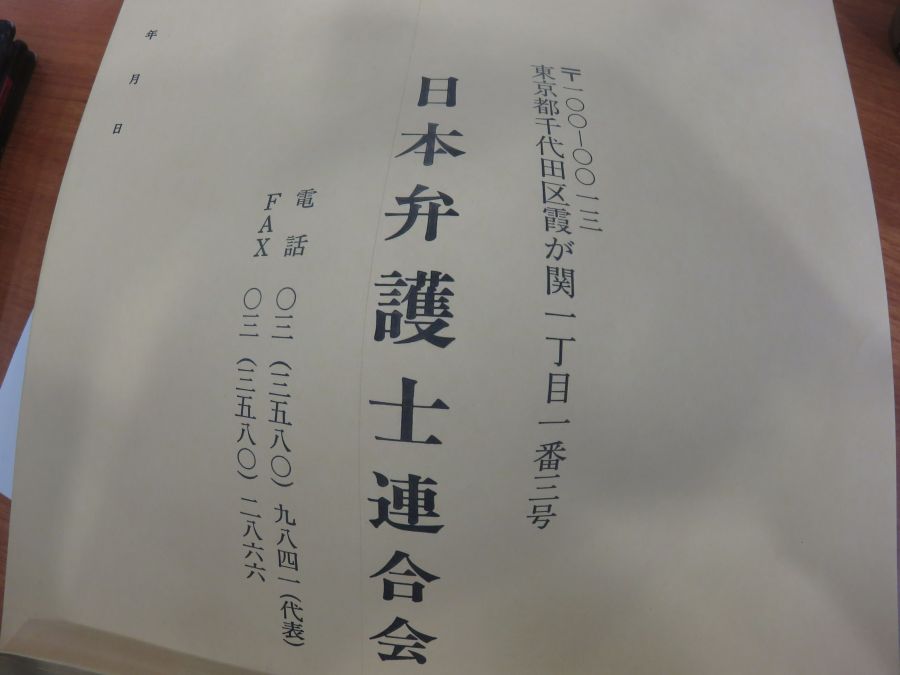 〒一〇〇―〇〇一三
東京都千代田区霞が関一丁目一番三号
日本弁護士連合会
電話 〇三(三五八〇)九八四一(代表)
FAX 〇三(三五八〇)二八六六
年 月 日